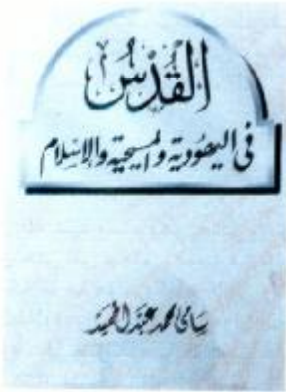 القُدْس
فى اليهودية والمسيحية والإسلام
سامى محمد عبد الحميد